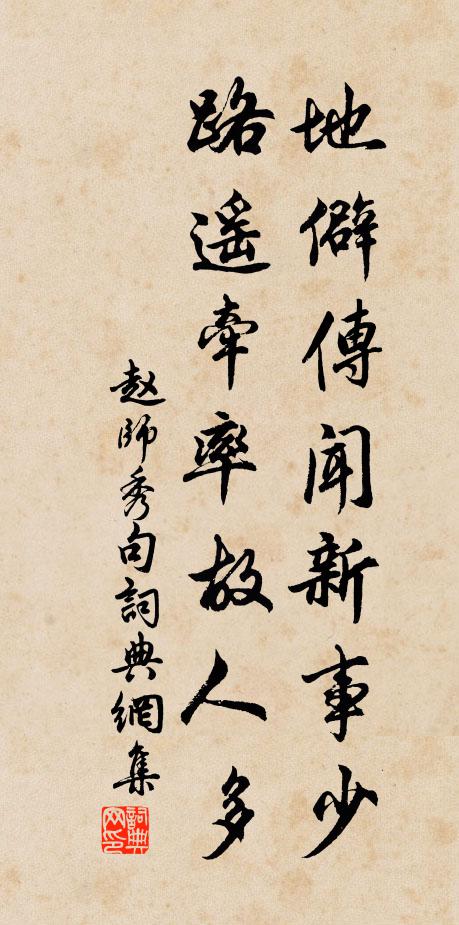 地僻傳聞新事少
路遥牽率故人多
赵師秀句詞典網集
詞典
网印